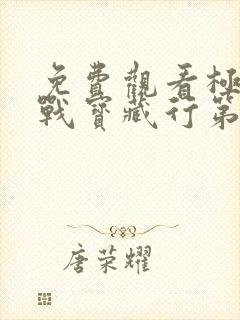 免費觀看極
戰寶藏行第
唐荣耀